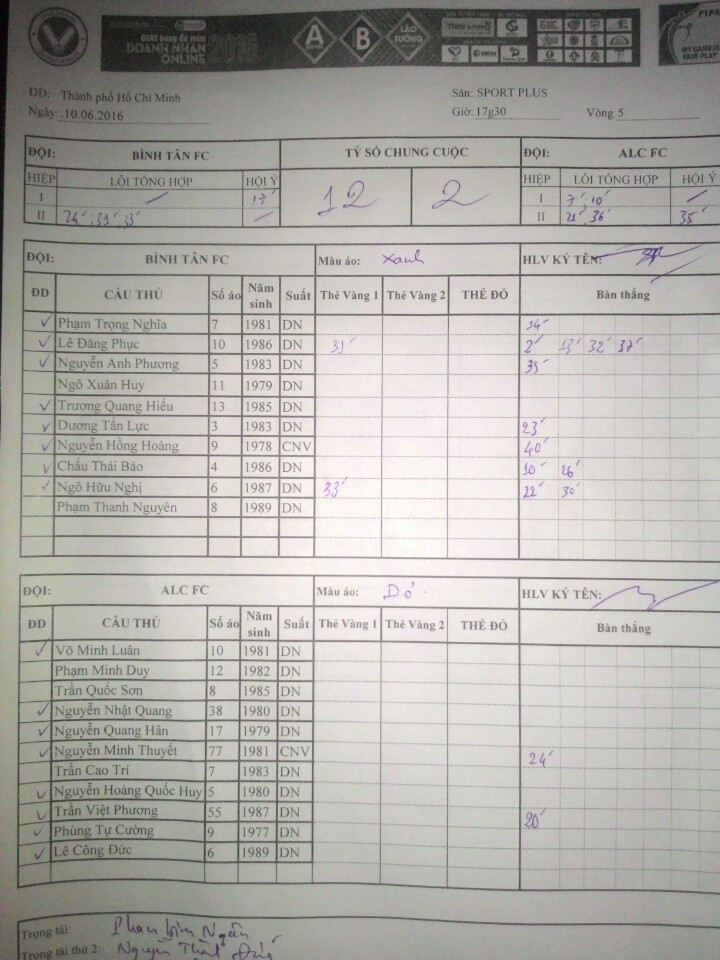 GIẢI bóng đá mini
DOANH NHÂN
ONLINE 2016
A B LÀO TƯỞNG
FIFA
MY GAME IS
FAIR PLAY
ĐĐ: Thành phố Hồ Chí Minh Sân: SPORT PLUS
Ngày: 10.06.2016 Giờ: 17g30 Vòng 5
ĐỘI: BÌNH TÂN FC TỶ SỐ CHUNG CUỘC ĐỘI: ALC FC
HIỆP LỖI TỔNG HỢP HỘI Ý 12 2 HIỆP LỖI TỔNG HỢP HỘI Ý
I / 17' I 7' 10' /
II 24' 31' 33' / II 21' 36' 35'
ĐỘI: BÌNH TÂN FC Màu áo: Xanh HLV KÝ TÊN:
ĐD CẦU THỦ Số áo Năm sinh Suất Thẻ Vàng 1 Thẻ Vàng 2 THẺ ĐỎ Bàn thắng
✓ Phạm Trọng Nghĩa 7 1981 DN 14'
✓ Lê Đăng Phục 10 1986 DN 31' 2' 13' 32' 37'
✓ Nguyễn Anh Phương 5 1983 DN 35'
Ngô Xuân Huy 11 1979 DN
✓ Trương Quang Hiếu 13 1985 DN
✓ Dương Tấn Lực 3 1983 DN 23'
✓ Nguyễn Hồng Hoàng 9 1978 CNV 40'
✓ Chấu Thái Bảo 4 1986 DN 10' 26'
✓ Ngô Hữu Nghị 6 1987 DN 33' 22' 30'
Phạm Thanh Nguyên 8 1989 DN
ĐỘI: ALC FC Màu áo: Đỏ HLV KÝ TÊN:
ĐD CẦU THỦ Số áo Năm sinh Suất Thẻ Vàng 1 Thẻ Vàng 2 THẺ ĐỎ Bàn thắng
✓ Võ Minh Luân 10 1981 DN
Phạm Minh Duy 12 1982 DN
Trần Quốc Sơn 8 1985 DN
✓ Nguyễn Nhật Quang 38 1980 DN
✓ Nguyễn Quang Hân 17 1979 DN
✓ Nguyễn Minh Thuyết 77 1981 CNV 24'
Trần Cao Trí 7 1983 DN
✓ Nguyễn Hoàng Quốc Huy 5 1980 DN
✓ Trần Việt Phương 55 1987 DN 20'
✓ Phùng Tự Cường 9 1977 DN
✓ Lê Công Đức 6 1989 DN
Trọng tài: Phan Ngân
Trọng tài thứ 2: Nguyễn